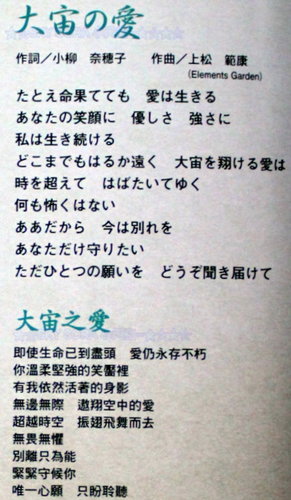 大宙の愛
作詞／小柳　奈穂子　作曲／上松　範康
(Elements Garden)
たとえ命果てても　愛は生きる
あなたの笑顔に　優しさ　強さに
私は生き続ける
どこまでもはるか遠く　大宙を翔ける愛は
時を超えて　はばたいてゆく
何も怖くはない
ああだから　今は別れを
あなただけ守りたい
ただひとつの願いを　どうぞ聞き届けて
大宙之愛
即使生命已到盡頭　愛仍永存不朽
你溫柔堅強的笑靨裡
有我依然活著的身影
無邊無際　遨翔空中的愛
超越時空　振翅飛舞而去
無畏無懼
別離只為能
緊緊守候你
唯一心願　只盼聆聽